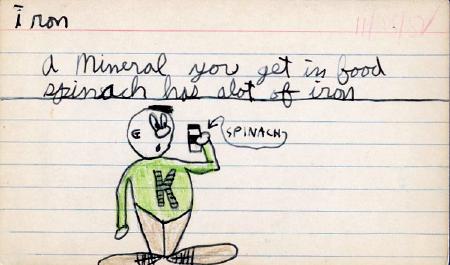 Iron
A Mineral you get in food
spinach has alot of iron
SPINACH
K